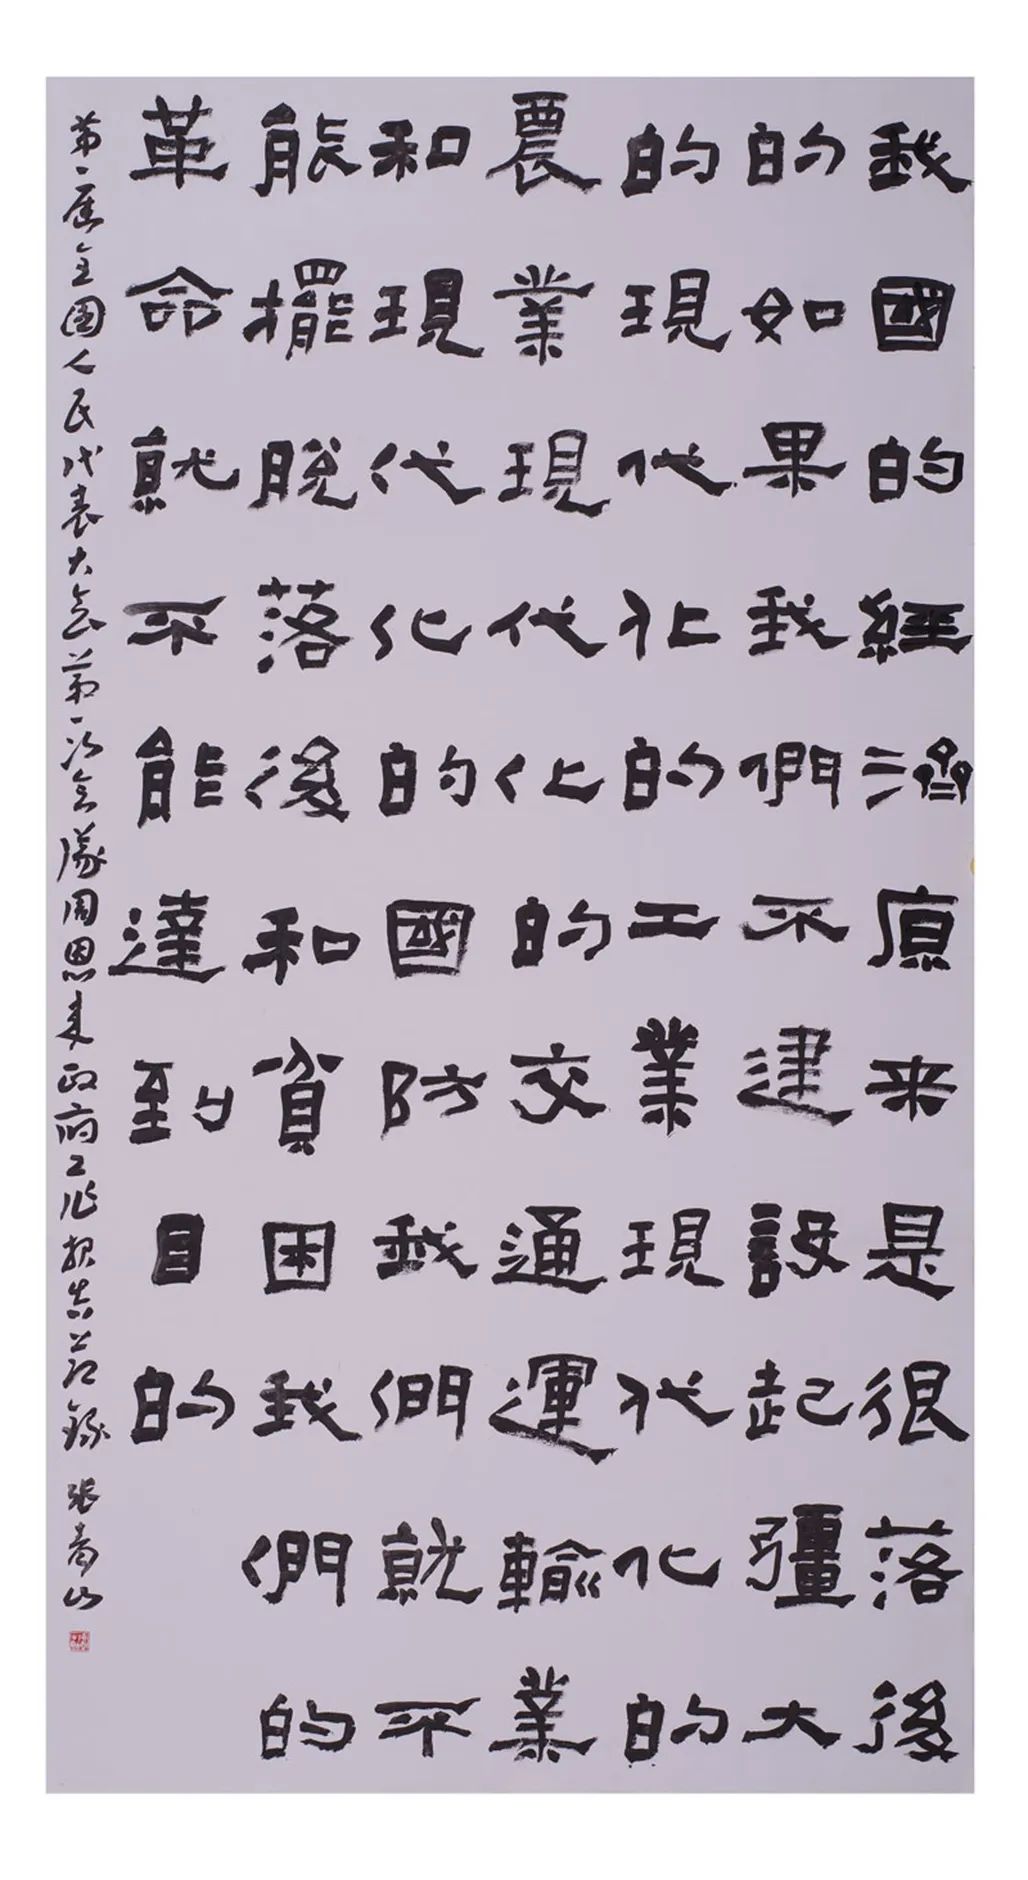 我國的經濟原来是很落後
的如果我們不建設起疆大
的現代化的工業現代化的
農業現代化的交通運輸業
和現代化的國防我們就不
能擺脫落後和貧困我們的
革命就不能達到目的
第一届全国人民代表大会第一次会议周恩来政府工作报告节录 张青山